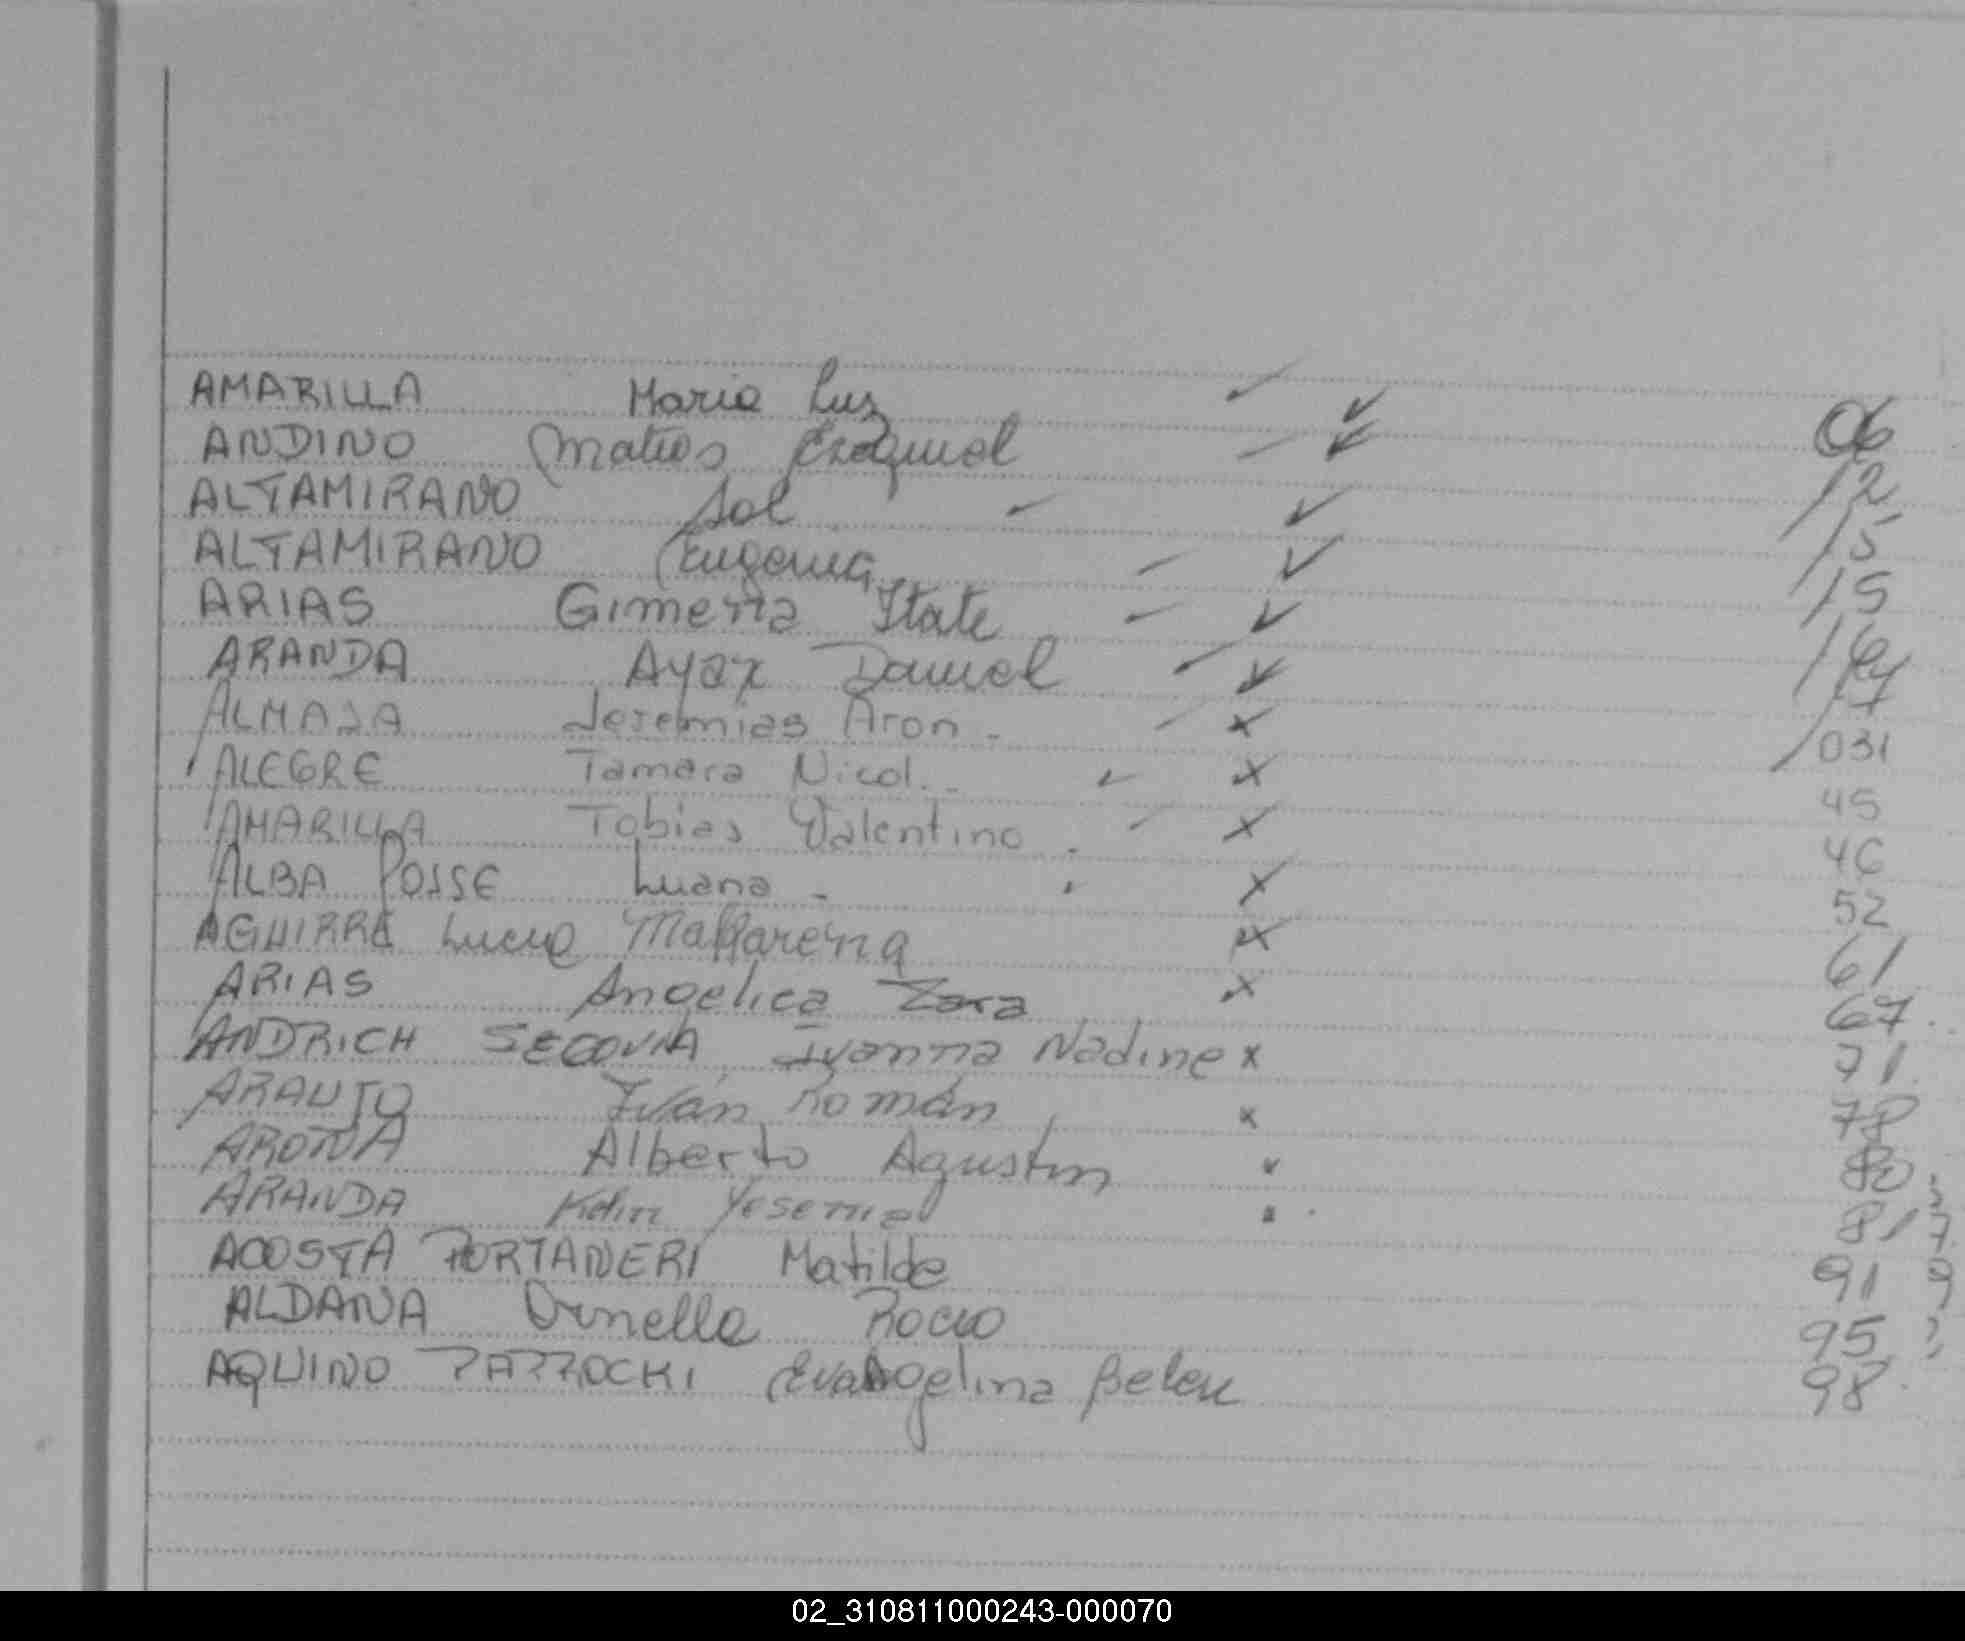 AMARILLA Maria Luz 06
ANDINO Mateos Ezequiel 12
ALTAMIRANO Sol 15
ALTAMIRANO Eugenia 15
ARIAS Gimena Itate 16
ARANDA Ayax Daniel 17
ALMADA Jeremias Aron - 031
ALEGRE Tamara Nicol. - 45
AMARILLA Tobias Valentino . 46
ALBA POSSE Luana - 52
AGUIRRE Lucia Macarena 61
ARIAS Angelica Zara 67
ANDRICH SEGOVIA Ivanna Nadine 71
ARAUJO Iván Román 78
Alberto Agustin 80
ARANDA Yesenia 81
ACOSTA PORTANERI Matilde 91
ALDANA Ornella Rocio 95
AQUINO Evangelina Belen 98
02_310811000243-000070